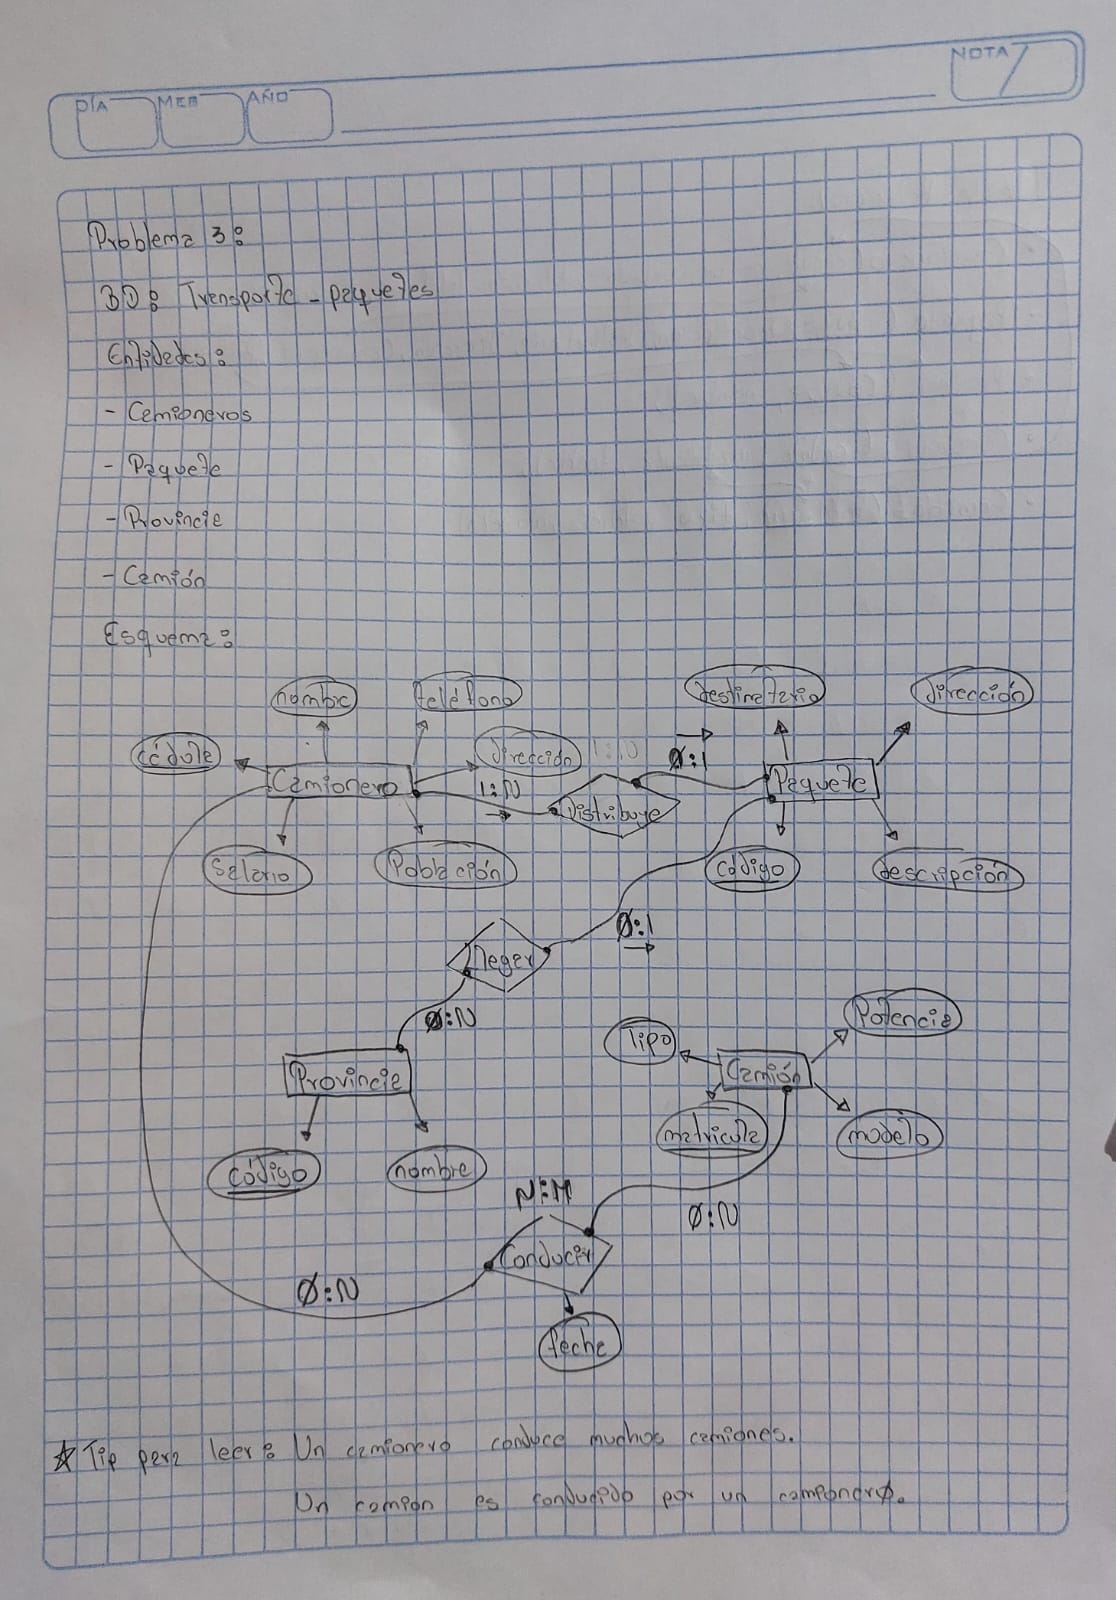 DÍA MES AÑO
NOTA
Problema 3:
BD: Transporte - paquetes
Entidades:
- Camioneros
- Paquete
- Provincia
- Camión
Esquema:
nombre teléfono destinatario dirección
cédula dirección 1:N 0:1
Camionero 1:N Distribuye Paquete
Salario Población código descripción
0:1
llegar
0:N
Potencia
tipo
Provincia Camión
matricula modelo
código nombre
N:M
0:N
Conducir
0:N
fecha
* Tip para leer: Un camionero conduce muchos camiones.
Un camion es conducido por un camionero.